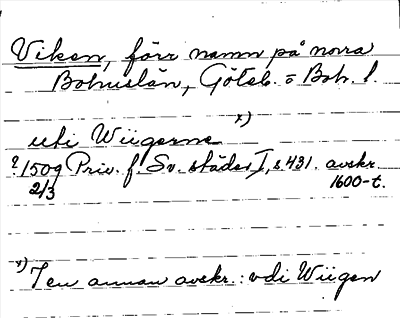 Viken, förr namn på norra
Bohuslän, Göteb. o Boh. l.
x)
uti Wiigerne
? 1509 Priv. f. Sv. städer I, s. 431. avskr.
2/3 1600-t.
x) I en annan avskr.: vdi Wiigen